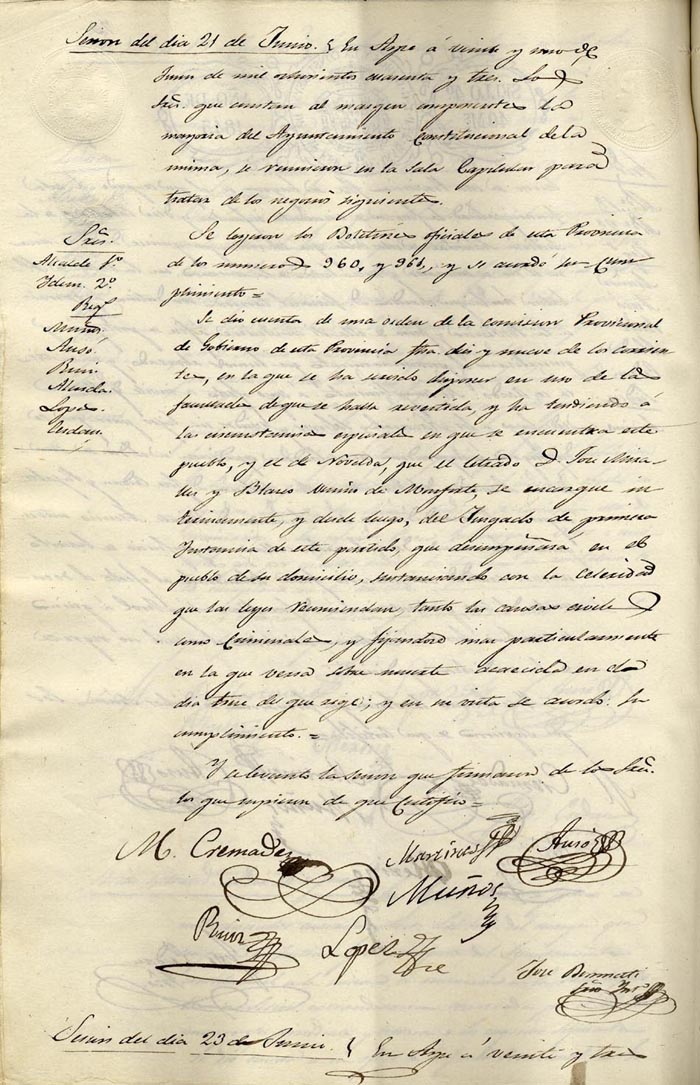 Sesion del dia 21 de Junio. En Aspe á veinte y uno de
Junio de mil ochocientos cuarenta y tres. Los
Sres. que constan al margen componentes la
mayoria del Ayuntamiento Constitucional de la
misma, se reunieron en la Sala Capitular para
tratar de los negocios siguientes.
Sres.
Alcalde 1º
Idem. 2º
Regs.
Muños.
Ausó.
Lopez.
Se leyeron los Boletines oficiales de esta Provincia
de los numeros 960, y 961, y se acordó su cum
plimiento =
Se dio cuenta de una orden de la comision Provisional
de Gobierno de esta Provincia fha. diez y nueve de los corrien
tes, en la que se ha servido disponer, en uso de las
facultades de que se halla revestida, y ha tendiendo á
las circunstancias especiales en que se encuentra este
pueblo, y el de Novelda, que el letrado D. Jose Mira
lles y Blanco vecino de Monforte, se encargue in
terinamente, y desde luego, del Juzgado de primera
Instancia de este partido, que desempeñará en el
pueblo de su domicilio, sustanciando con la celeridad
que las leyes recomiendan, tanto las causas civiles
como Criminales, y fijandose mas particularmente
en la que versa sobre muerte acaecida en el
dia trece del que rige; y en su vista se acordo su
cumplimiento. =
Y se levanto la sesion que firmaron de los Sres.
los que supieron de que Certifico =
M. Cremades
Martinez
Ausó
Muños
Ruiz
Lopez
Jose Bermati
Srio Intº
Sesion del dia 23 de Junio. En Aspe á veinte y tres